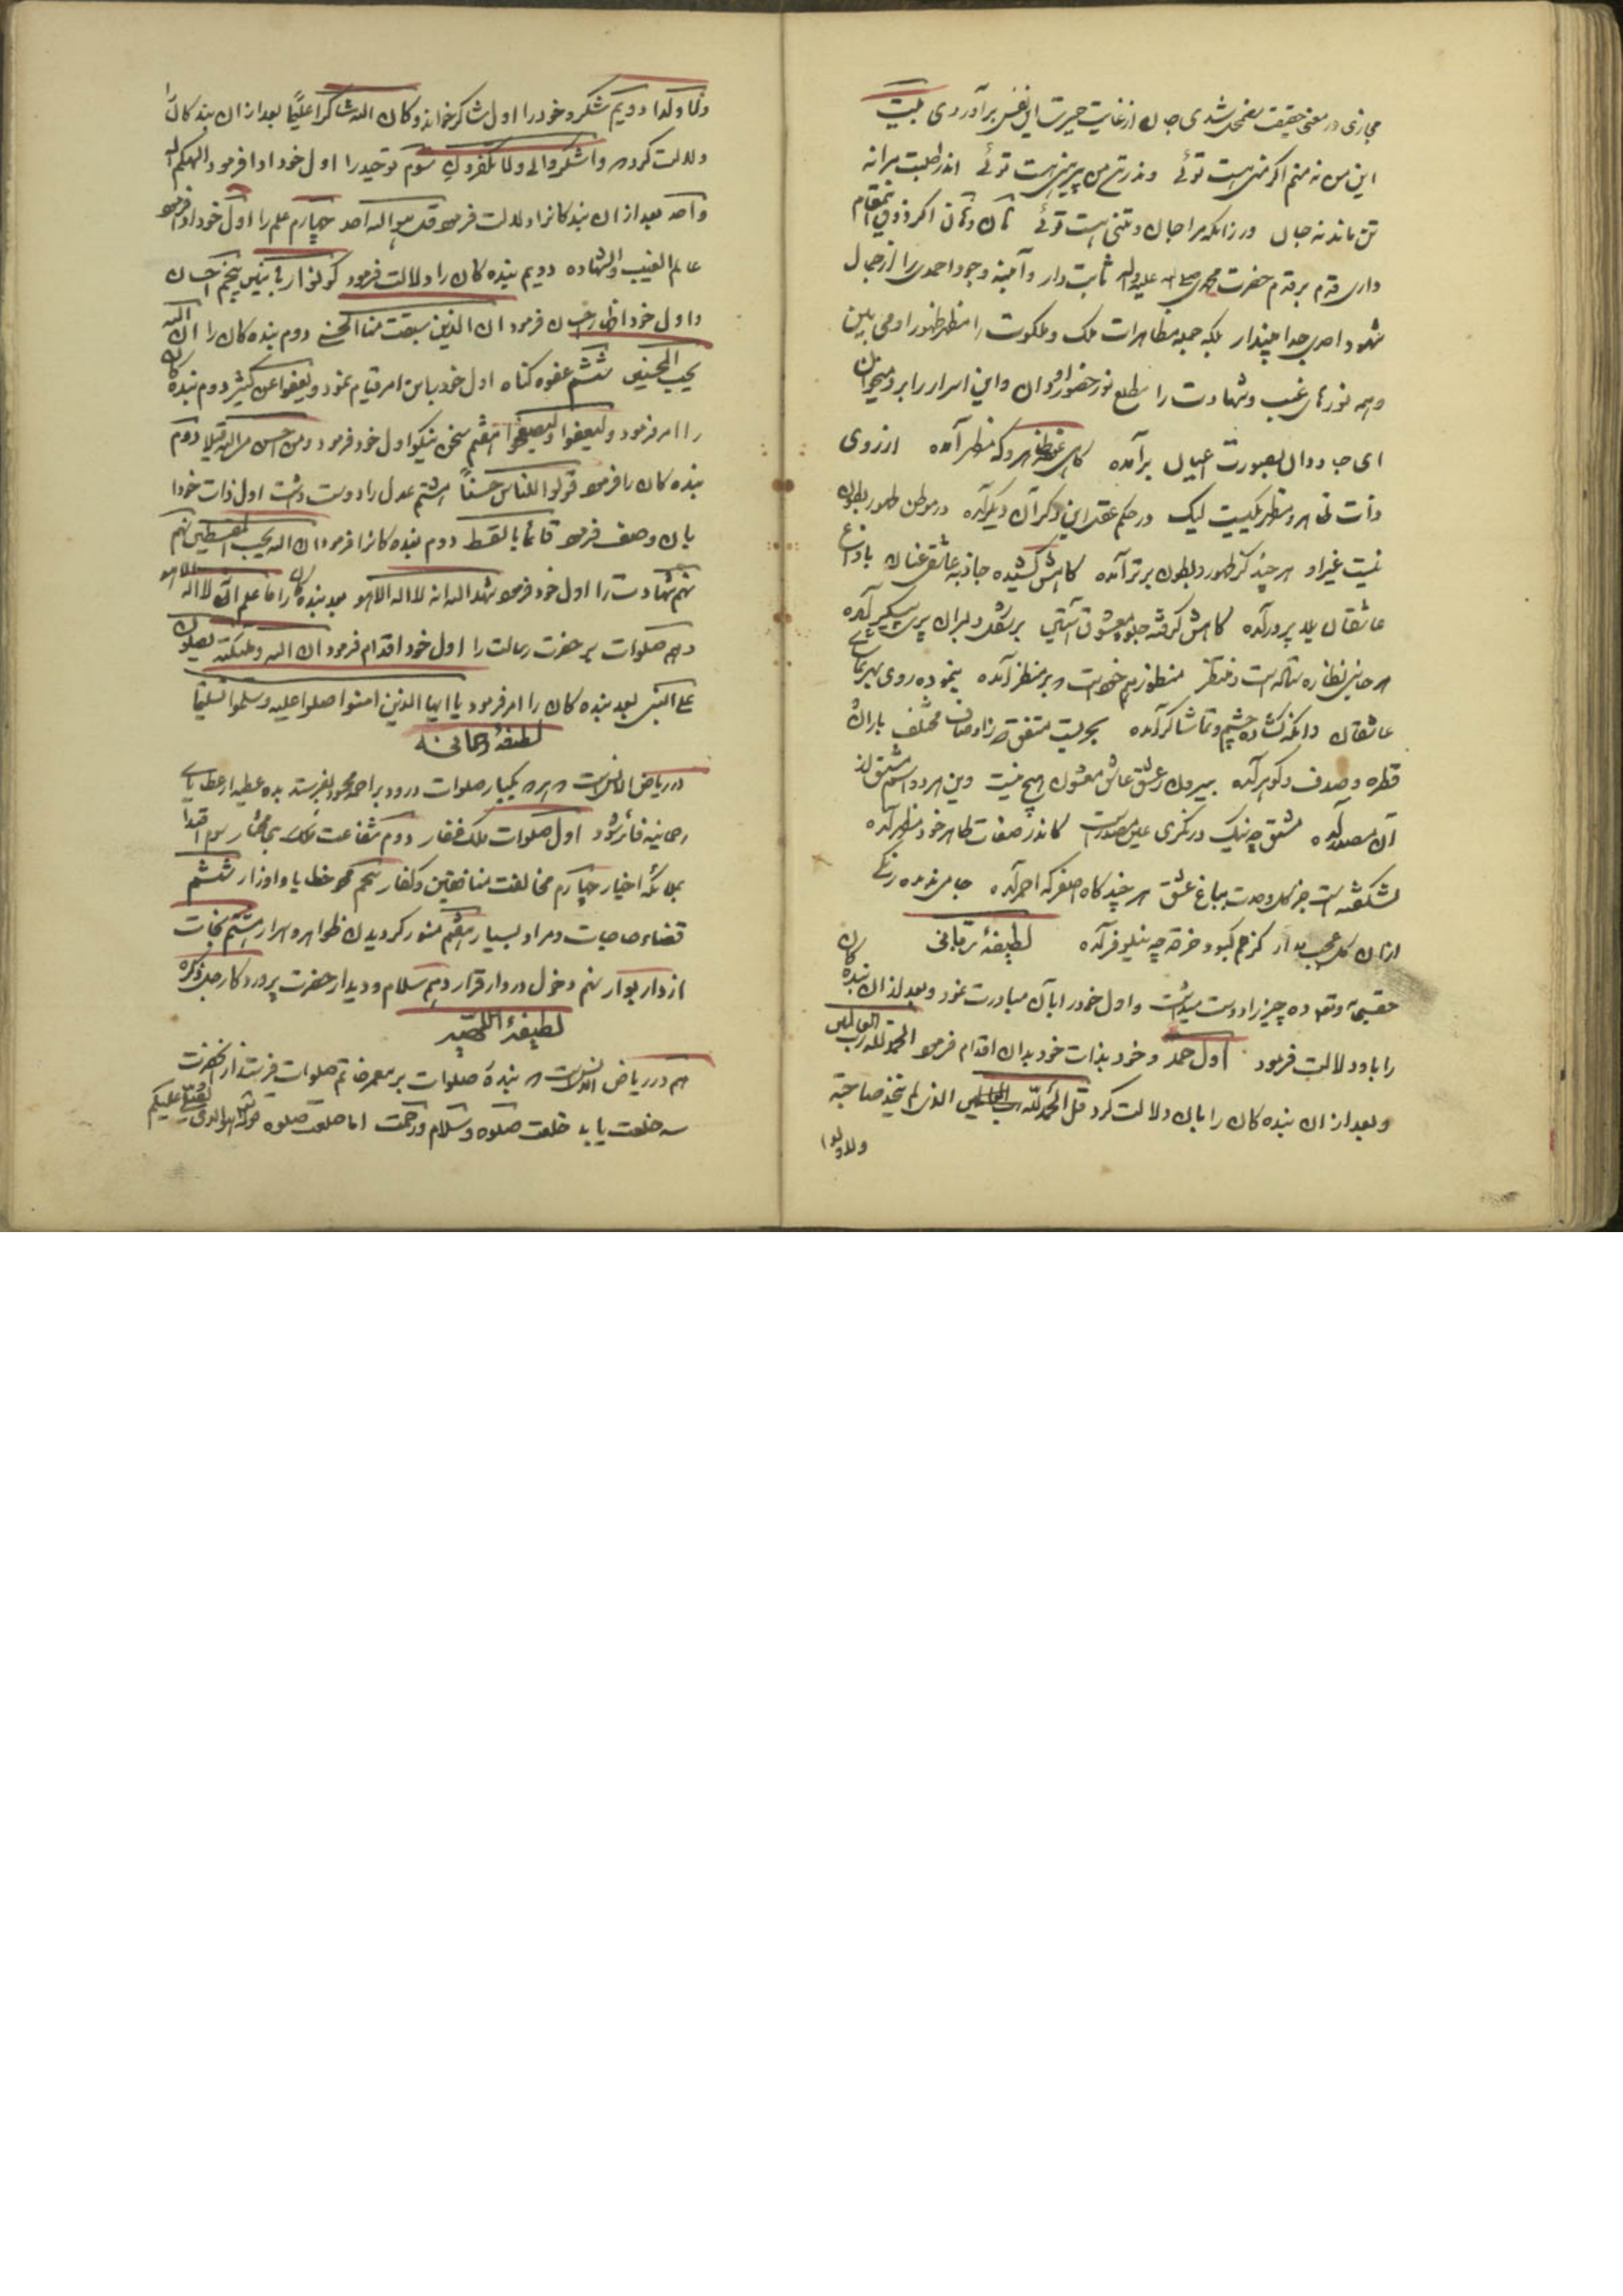 مجازی در معنی حقیقت مضمحل شدی جان از غایت حیرت این نفس برآوردی بیت
این من نه منم اگر منی هست توئی ودر بر من پیرهنی هست توئی اندر طلبت مرا نه
تن ماند نه جان ور زانکه مرا جان و تنی هست توئی اگر ذوق این مقام
داری قدم بر قدم حضرت محمدی صلی الله علیه واله ثابت دار و آیینه وجود احمدی را از جمال
شهود احدی جدا مپندار بلکه جمله مظاهرات ملک و ملکوت را مظهر ظهور او می بین
و همه نورهای غیب و شهادت را مطلع نور حضور او دان و این اسرار را بر او میخوان
ای جاودان بصورت اعیان برآمده گاهی ظاهر و گه مظهر آمده از روی
ذات ظاهر و مظهر یکیست لیک در حکم عقل این دگر آن دیگر آمده در موطن ظهور بطون
نیست غیر او هر چند کز ظهور و بطون برتر آمده گاهش کشیده جاذبه عاشقی عنان با داغ
عاشقان بلا پرور آمده گاهش گرفته جلوه معشوق آستین بر شکل دلبران پری پیکر آمده
هر جانبی نظاره منظور هم خود است بر منظر آمده بنموده روی بهر تماشای
عاشقان وانگه گشاده چشم و تماشاگر آمده بحریست متفق اوصاف مختلف باران
قطره و صدف و گوهر آمده بیرون ز عشق و عاشق و معشوق هیچ نیست وین هر دو اسم مشتق از
آن مصدر آمده مشتق چو نیک درنگری عین مصدر است کاندر صفات ظاهر خود مظهر آمده
نشکفته است جز گل وحدت بباغ عشق هر چند گاه اصفر و گه احمر آمده جامی ندیده رنگی
ازان گل عجب مدار کز خم کبود خرقه چو نیلوفر آمده لطیفهٔ ربانی
حقتعالی ده چیز را دوست میداشت و اول خود را بآن مبادرت نمود و بعد از ان بنده کان
را باو دلالت فرمود اول حمد و خود بذات خود بدان اقدام فرمود الحمد لله رب العالمین
و بعد از ان بنده کان را بان دلالت کرد قل الحمد لله الذی لم یتخذ صاحبة
ولا ولدا
ولا ولدا دویم شکر و خود را اول شاکر خواند و کان الله شاکرا علیما بعد از ان بندکان را
دلالت کرد واشکروا لی ولا تکفرون سوم توحید را اول خود ادا فرمود الهکم اله
واحد بعد از ان بندکانرا دلالت فرمود قل هو الله احد چهارم علم را اول خود ادا فرمود
عالم الغیب والشهاده دویم بنده کان را دلالت فرمود کونوا ربانیین پنجم احسان
و اول خود اظهار احسان فرمود ان الذین سبقت لهم منا الحسنی دوم بنده کان را ان الله
یحب المحسنین ششم عفو گناه اول خود باین امر قیام نمود ویعفوا عن کثیر دوم بنده کان
را امر فرمود ولیعفوا ولیصفحوا هفتم سخن نیکو اول خود فرمود ومن احسن من الله قیلا دوم
بنده کان را فرمود قولوا للناس حسنا هشتم عدل را دوست داشت اول ذات خود را
بان وصف فرمود قائما بالقسط دوم بنده کانرا فرمود ان الله یحب المقسطین نهم
شهادت را اول خود فرمود شهد الله انه لا اله الا هو بعد بنده کان را فاعلم انه لا اله الا هو
دهم صلوات بر حضرت رسالت را اول خود اقدام فرمود ان الله وملئکته یصلون
علی النبی بعد بنده کان را امر فرمود یا ایها الذین امنوا صلوا علیه وسلموا تسلیما
لطیفهٔ رحمانیه
در ریاض الانس است هر که یکبار صلوات درود بر احمد محمود بفرستد بده عطیه از عطایای
رحمانیه فائز شود اول صلوات ملک غفار دوم شفاعت سوم اقتدا
بملائکه اخیار چهارم مخالفت منافقین و کفار پنجم محو خطایا و اوزار ششم
قضاء حاجات و مراد بسیار هفتم منور گردیدن ظواهر و اسرار هشتم نجات
از دار بوار نهم دخول در دار قرار دهم سلام و دیدار حضرت پروردگار جل ذکره
لطیفهٔ اللهیه
هم در ریاض الانس است بندهٔ صلوات بر فرستد از حضرت
سه خلعت یابد خلعت صلوه و سلام و رحمت اما خلعت صلوه هو الذی یصلی علیکم